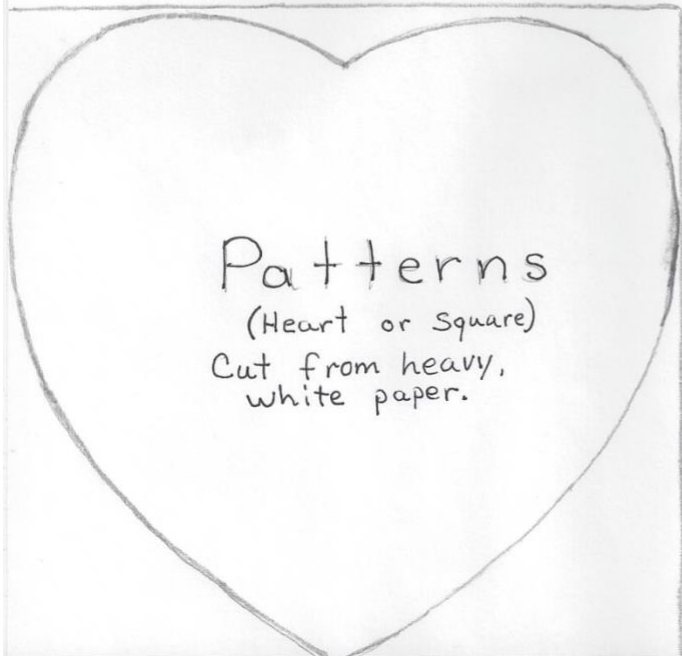 Patterns
(Heart or Square)
Cut from heavy,
white paper.